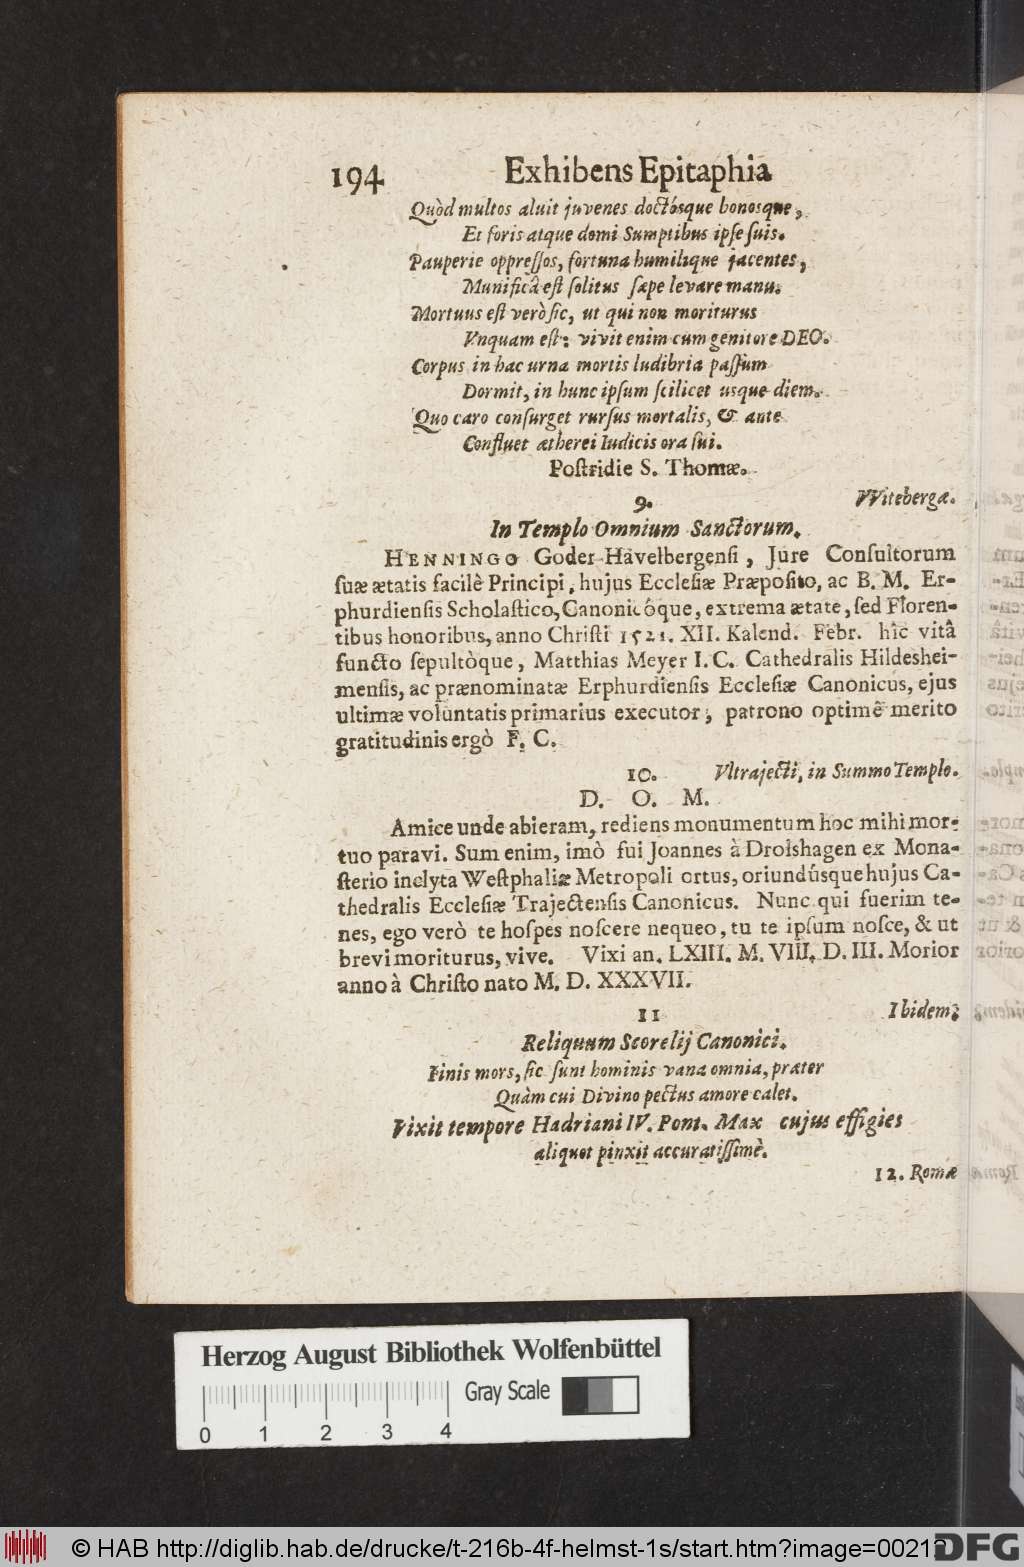 194 Exhibens Epitaphia
Quòd multos aluit juvenes doctósque bonosque,
Et foris atque domi Sumptibus ipſe ſuis.
Pauperie oppreſſos, fortuna humilique jacentes,
Munificâ eſt ſolitus ſæpe levare manu.
Mortuus eſt verò ſic, ut qui non moriturus
Vnquam eſt: vivit enim cum genitore DEO.
Corpus in hac urna mortis ludibria paſſum
Dormit, in hunc ipſum ſcilicet usque diem.
Quo caro conſurget rurſus mortalis, & ante
Confluet ætherei Iudicis ora ſui.
Poſtridie S. Thomæ.
9. VVitebergæ.
In Templo Omnium Sanctorum.
HENNINGO Goder Havelbergenſi, Jure Conſultorum
ſuæ ætatis facilè Principi, hujus Eccleſiæ Præpoſito, ac B. M. Er-
phurdienſis Scholaſtico, Canonicóque, extrema ætate, ſed Floren-
tibus honoribus, anno Chriſti 1521. XII. Kalend. Febr. hîc vitâ
functo ſepultòque, Matthias Meyer I. C. Cathedralis Hildeshei-
menſis, ac prænominatæ Erphurdienſis Eccleſiæ Canonicus, ejus
ultimæ voluntatis primarius executor, patrono optimè merito
gratitudinis ergò F. C.
10. Vltrajecti, in Summo Templo.
D. O. M.
Amice unde abieram, rediens monumentum hoc mihi mor-
tuo paravi. Sum enim, imò fui Joannes à Drolshagen ex Mona-
ſterio inclyta Weſtphaliæ Metropoli ortus, oriundúsque hujus Ca-
thedralis Eccleſiæ Trajectenſis Canonicus. Nunc qui fuerim te-
nes, ego verò te hoſpes noſcere nequeo, tu te ipſum noſce, & ut
brevi moriturus, vive. Vixi an. LXIII. M. VIII. D. III. Morior
anno à Chriſto nato M. D. XXXVII.
11 Ibidem;
Reliquum Scorelij Canonici.
Finis mors, ſic ſunt hominis vana omnia, præter
Quàm cui Divino pectus amore calet.
Vixit tempore Hadriani IV. Pont. Max cujus effigies
aliquot pinxit accuratiſſimè.
12. Romæ
Herzog August Bibliothek Wolfenbüttel
Gray Scale
0 1 2 3 4
© HAB http://diglib.hab.de/drucke/t-216b-4f-helmst-1s/start.htm?image=00212
DFG